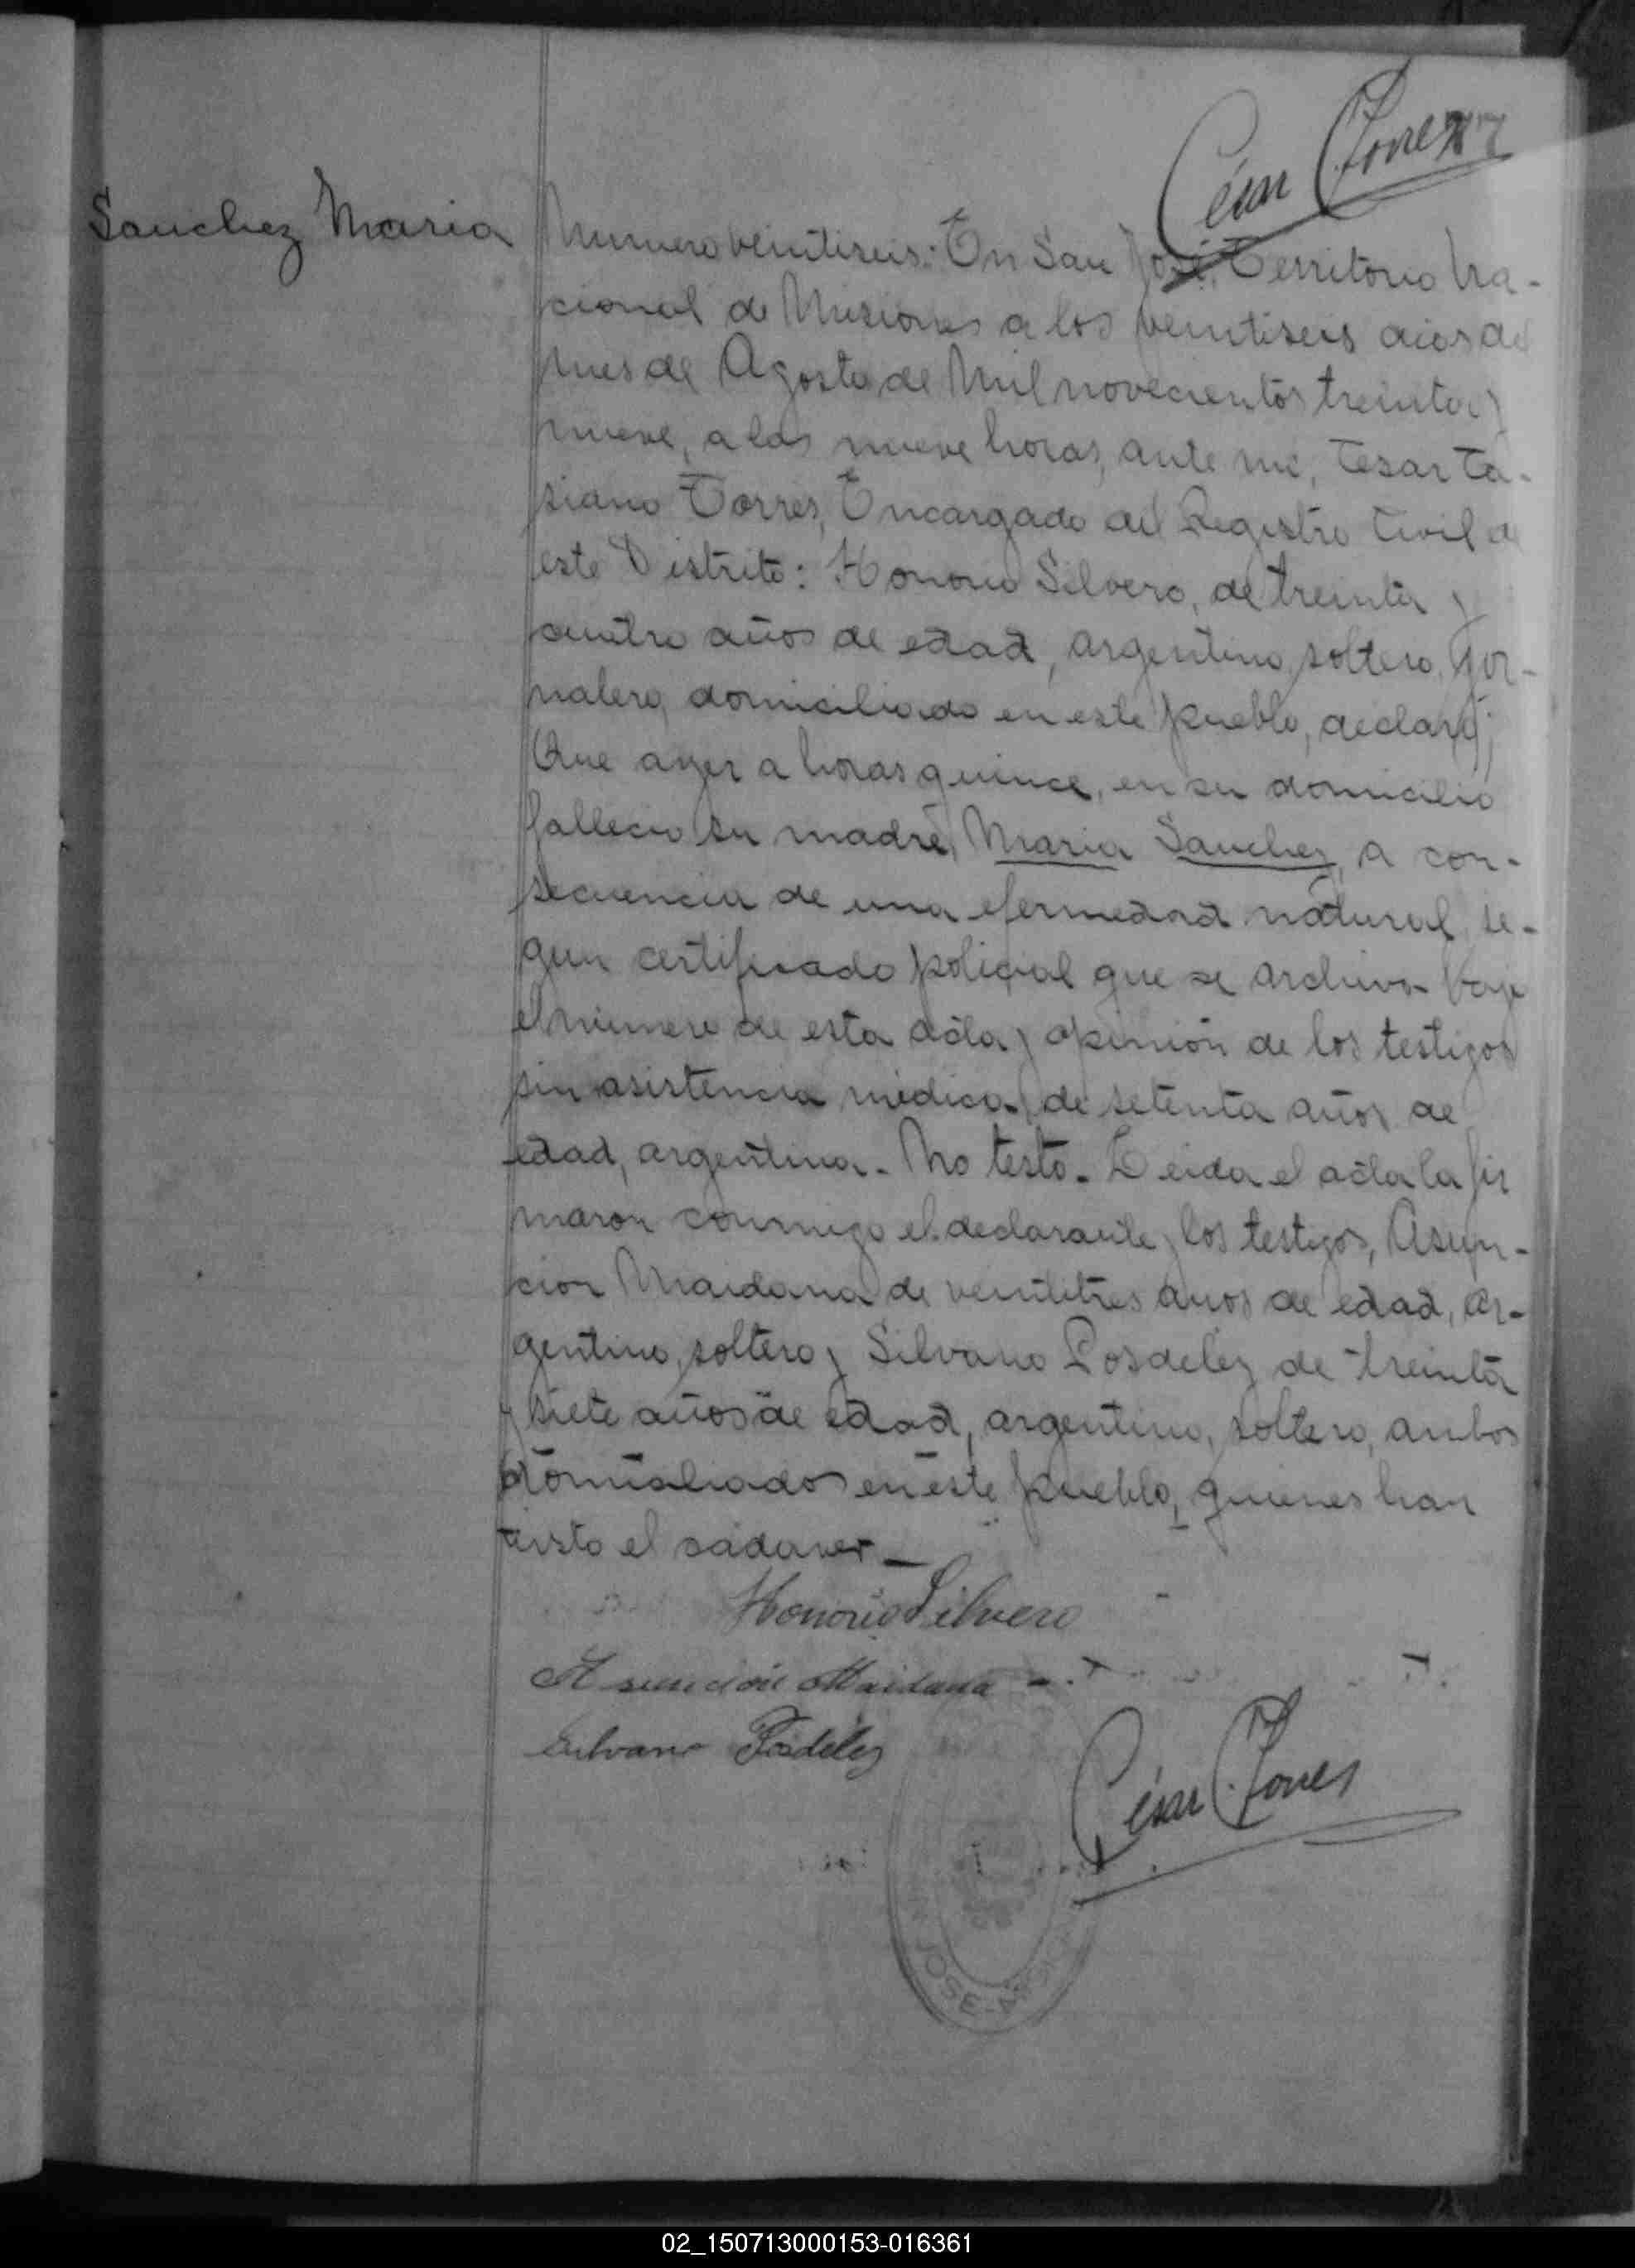 César Torres 77
Sanchez Maria
Numero veintiseis: En San José, Territorio Na-
cional de Misiones a los veintiseis dias del
mes de Agosto de Mil novecientos treinta y
nueve, a las nueve horas, ante mi, Cesar Ta-
siano Torres, Encargado del Registro Civil de
este Distrito: Honorio Silvero, de treinta y
cuatro años de edad, argentino, soltero, Jor-
nalero, domiciliado en este pueblo, declaró;
Que ayer a horas quince, en su domicilio
fallecio su madre, Maria Sanchez, a con-
secuencia de una efermedad natural, se-
gun certificado policial que se archiva bajo
el número de esta acta y opinión de los testigos
sin asistencia médica, de setenta años de
edad, argentina. No testó. Leida el acta la fir
maron conmigo el declarante y los testigos, Asun-
cion Maidana de veintitres años de edad, ar-
gentino, soltero y Silvano Posdeley de treinta
y siete años de edad, argentino, soltero, ambos
domiciliados en este pueblo, quienes han
visto el cadaver.—
Honorio Silvero
Asunción Maidana
Silvano
César Torres
SAN JOSE - MISIONES
02_150713000153-016361